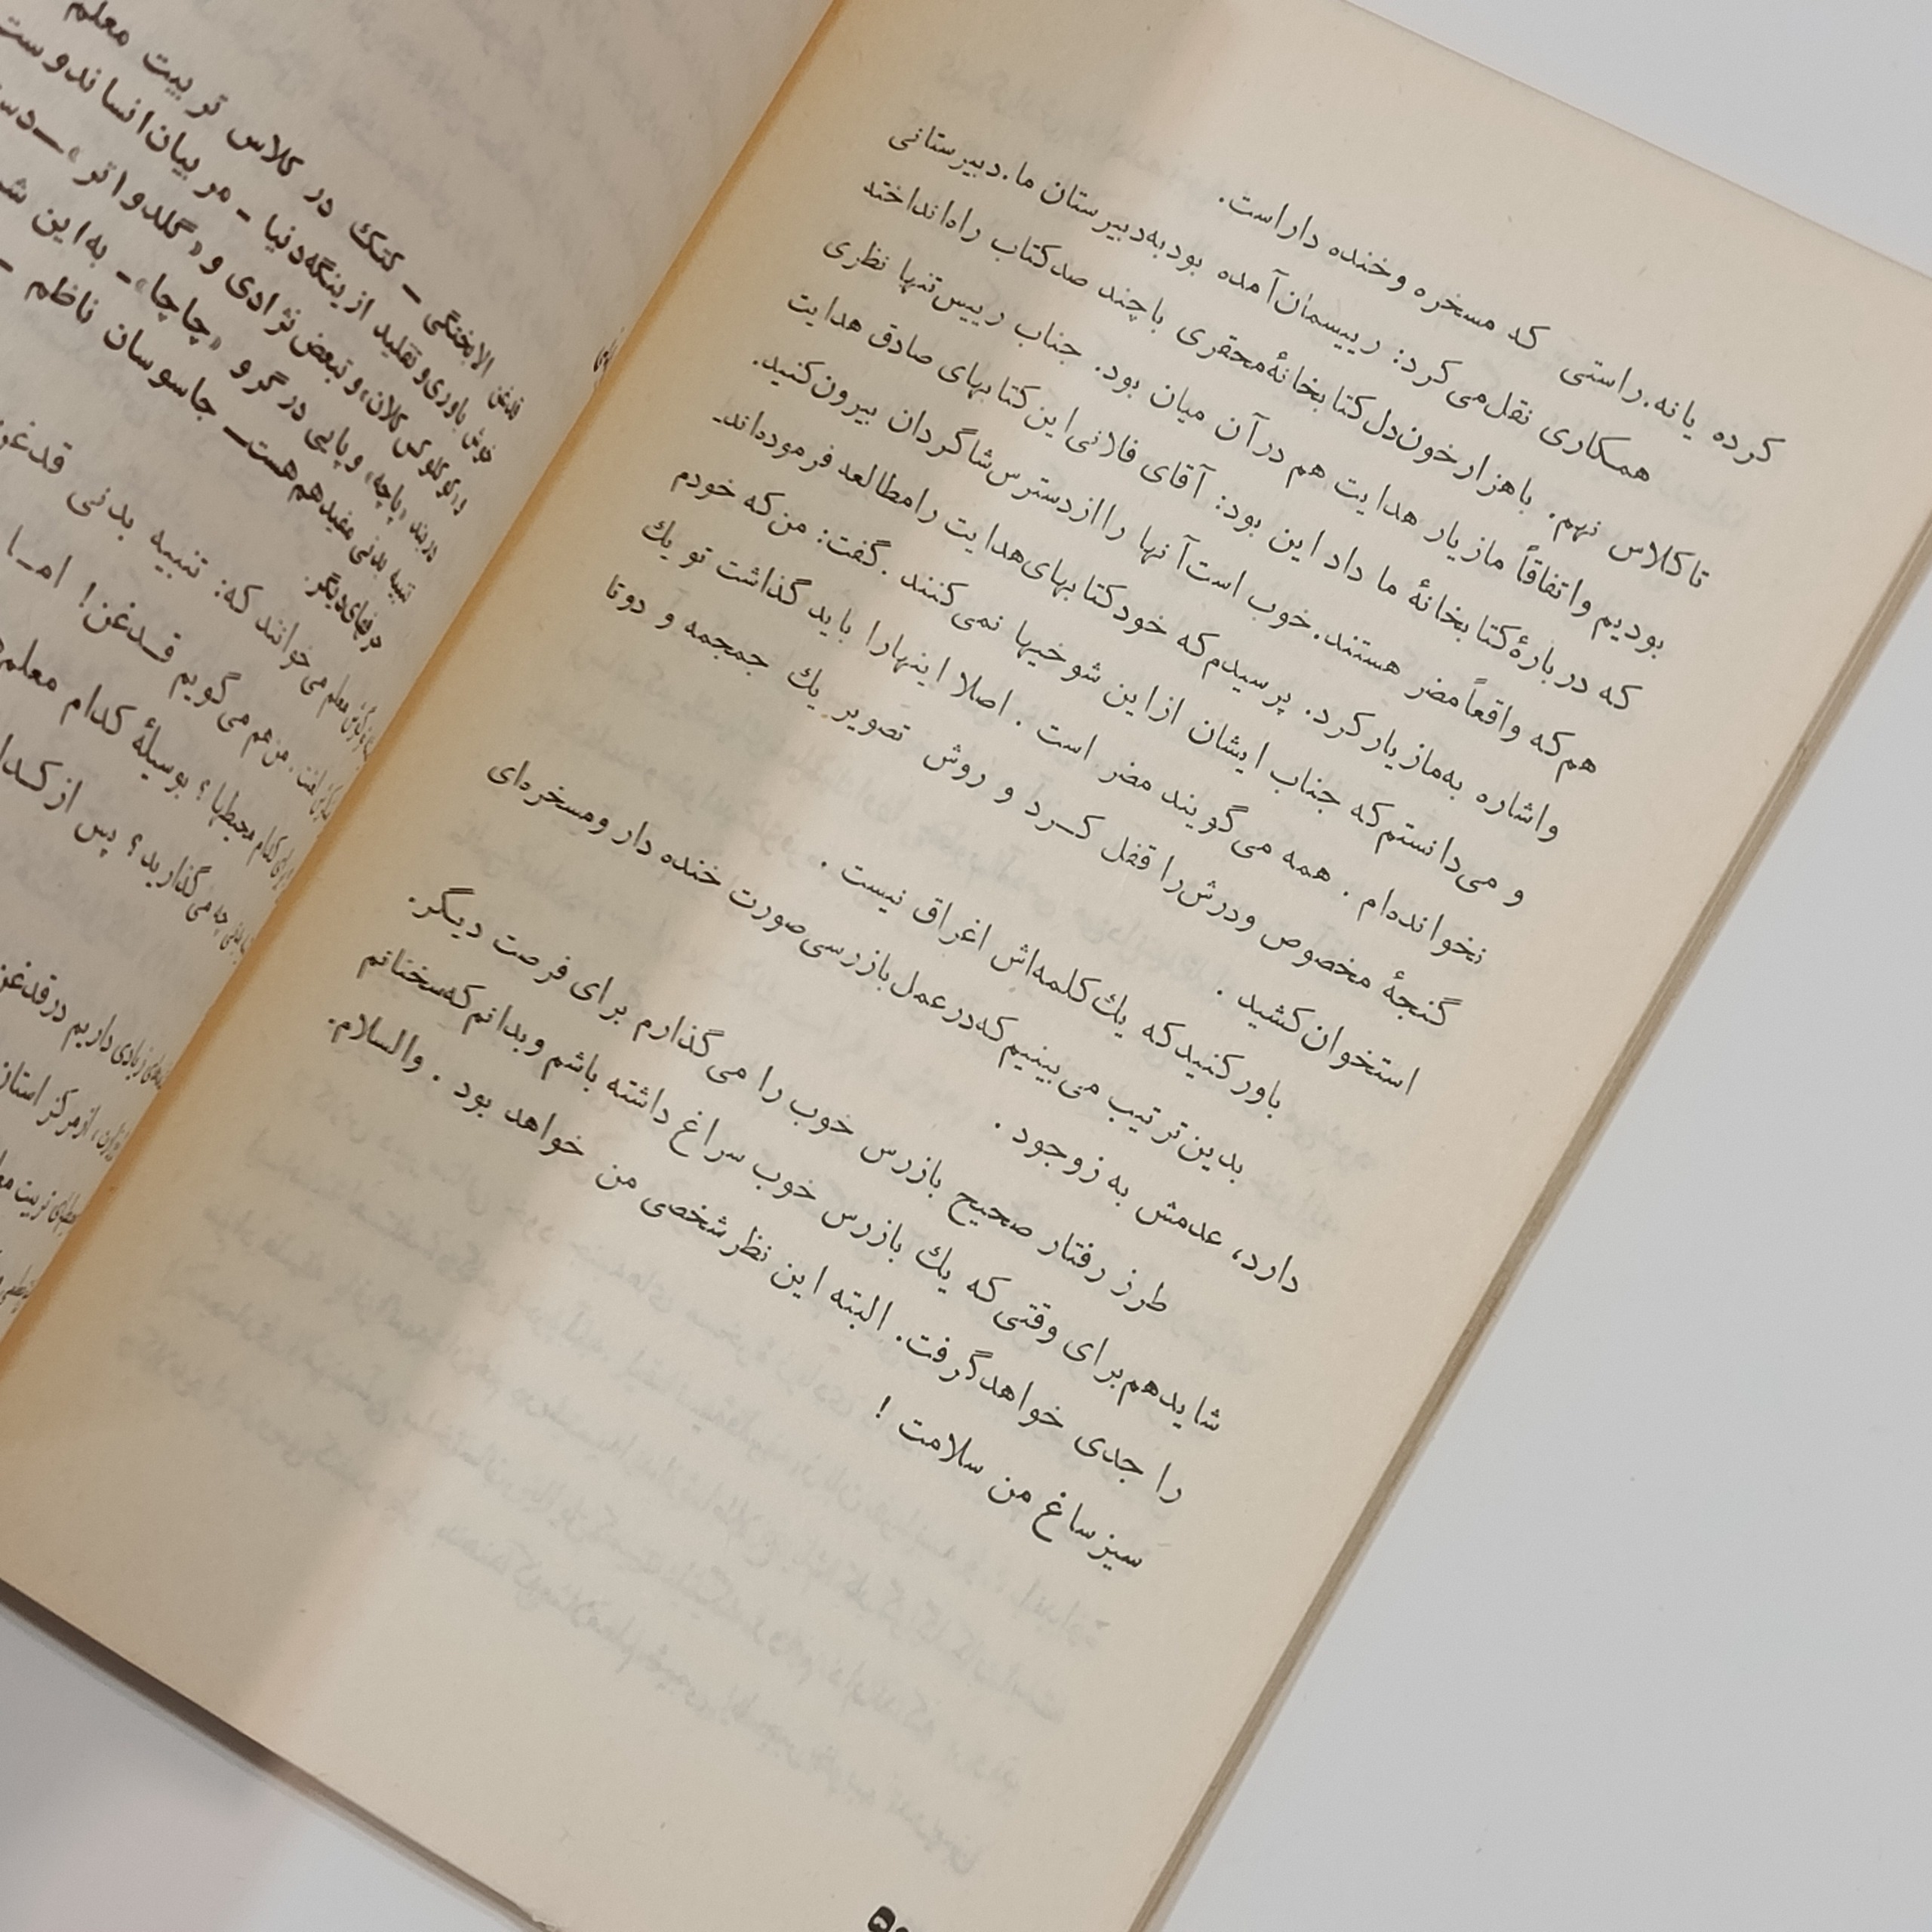 کرده یا نه. راستی که مسخره و خنده دار است.
همکاری نقل می کرد: رییسمان آمده بود به دبیرستان ما. دبیرستانی
تا کلاس نهم. با هزار خون دل کتابخانهٔ محقری با چند صد کتاب راه انداخته
بودیم و اتفاقاً مازیار هدایت هم در آن میان بود. جناب رییس تنها نظری
که دربارهٔ کتابخانهٔ ما داد این بود: آقای فلانی این کتابهای صادق هدایت
هم که واقعاً مضر هستند. خوب است آنها را از دسترس شاگردان بیرون کنید.
و اشاره به مازیار کرد. پرسیدم که خود کتابهای هدایت را مطالعه فرموده اند ـ
و می دانستم که جناب ایشان از این شوخیها نمی کنند. گفت: من که خودم
نخوانده ام. همه می گویند مضر است. اصلا اینها را باید گذاشت تو یك
گنجهٔ مخصوص و درش را قفل کــرد و روش تصویر یك جمجمه و دو تا
استخوان کشید.
باور کنید که یك کلمه اش اغراق نیست.
بدین ترتیب می بینیم که در عمل بازرسی صورت خنده دار و مسخره ای
دارد، عدمش به ز وجود.
طرز رفتار صحیح بازرس خوب را می گذارم برای فرصت دیگر.
شاید هم برای وقتی که یك بازرس خوب سراغ داشته باشم و بدانم که سخنانم
را جدی خواهد گرفت. البته این نظر شخصی من خواهد بود. والسلام.
سیز ساغ من سلامت!
کتک در کلاس تربیت معلم
خوش باوری و تقلید از ینگه دنیا ـ مربیان انساندوست
و تبعض نژادی و «گلدواتر» ـ
و پاپی در گرو «چاچا» ـ به این
تنبیه بدنی مفید هم هست ـ جاسوسان ناظم ـ
می خوانند که: تنبیه بدنی قدغن
من هم می گویم قــدغن! امــا
کدام محیطها؟ بوسیلهٔ کدام
چه می گذارید؟ پس از
زیادی داریم در قدغن
از مرکز